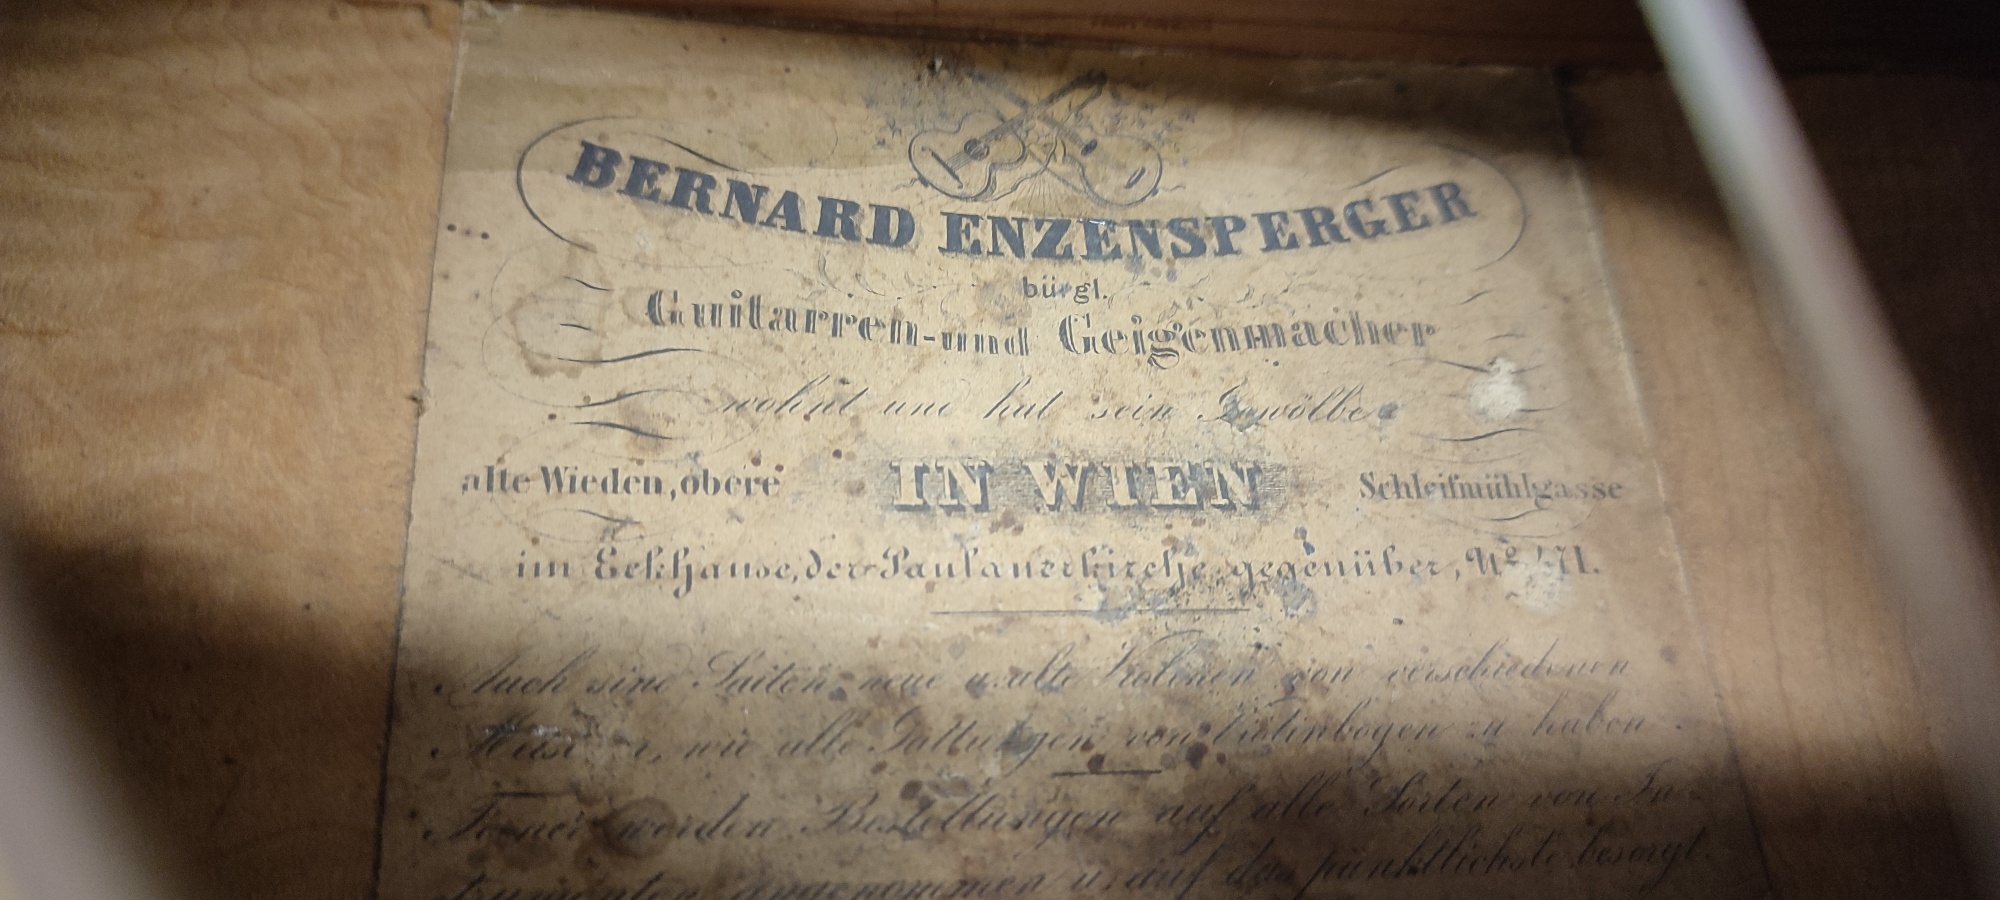 BERNARD ENZENSPERGER
bürgl.
Guitarren-und Geigenmacher
wohnt und hat sein Gewölbe
alte Wieden, obere IN WIEN Schleifmühlgasse
im Eckhause, der Paulanerkirche gegenüber, Nº 471.
Auch sind Saiten, neue u. alte Violinen von verschiedenen
wie alle Gattungen von Violinbogen zu haben.
Ferner werden Bestellungen auf alle Sorten von In-
strumenten angenommen u. auf das pünktlichste besorgt.